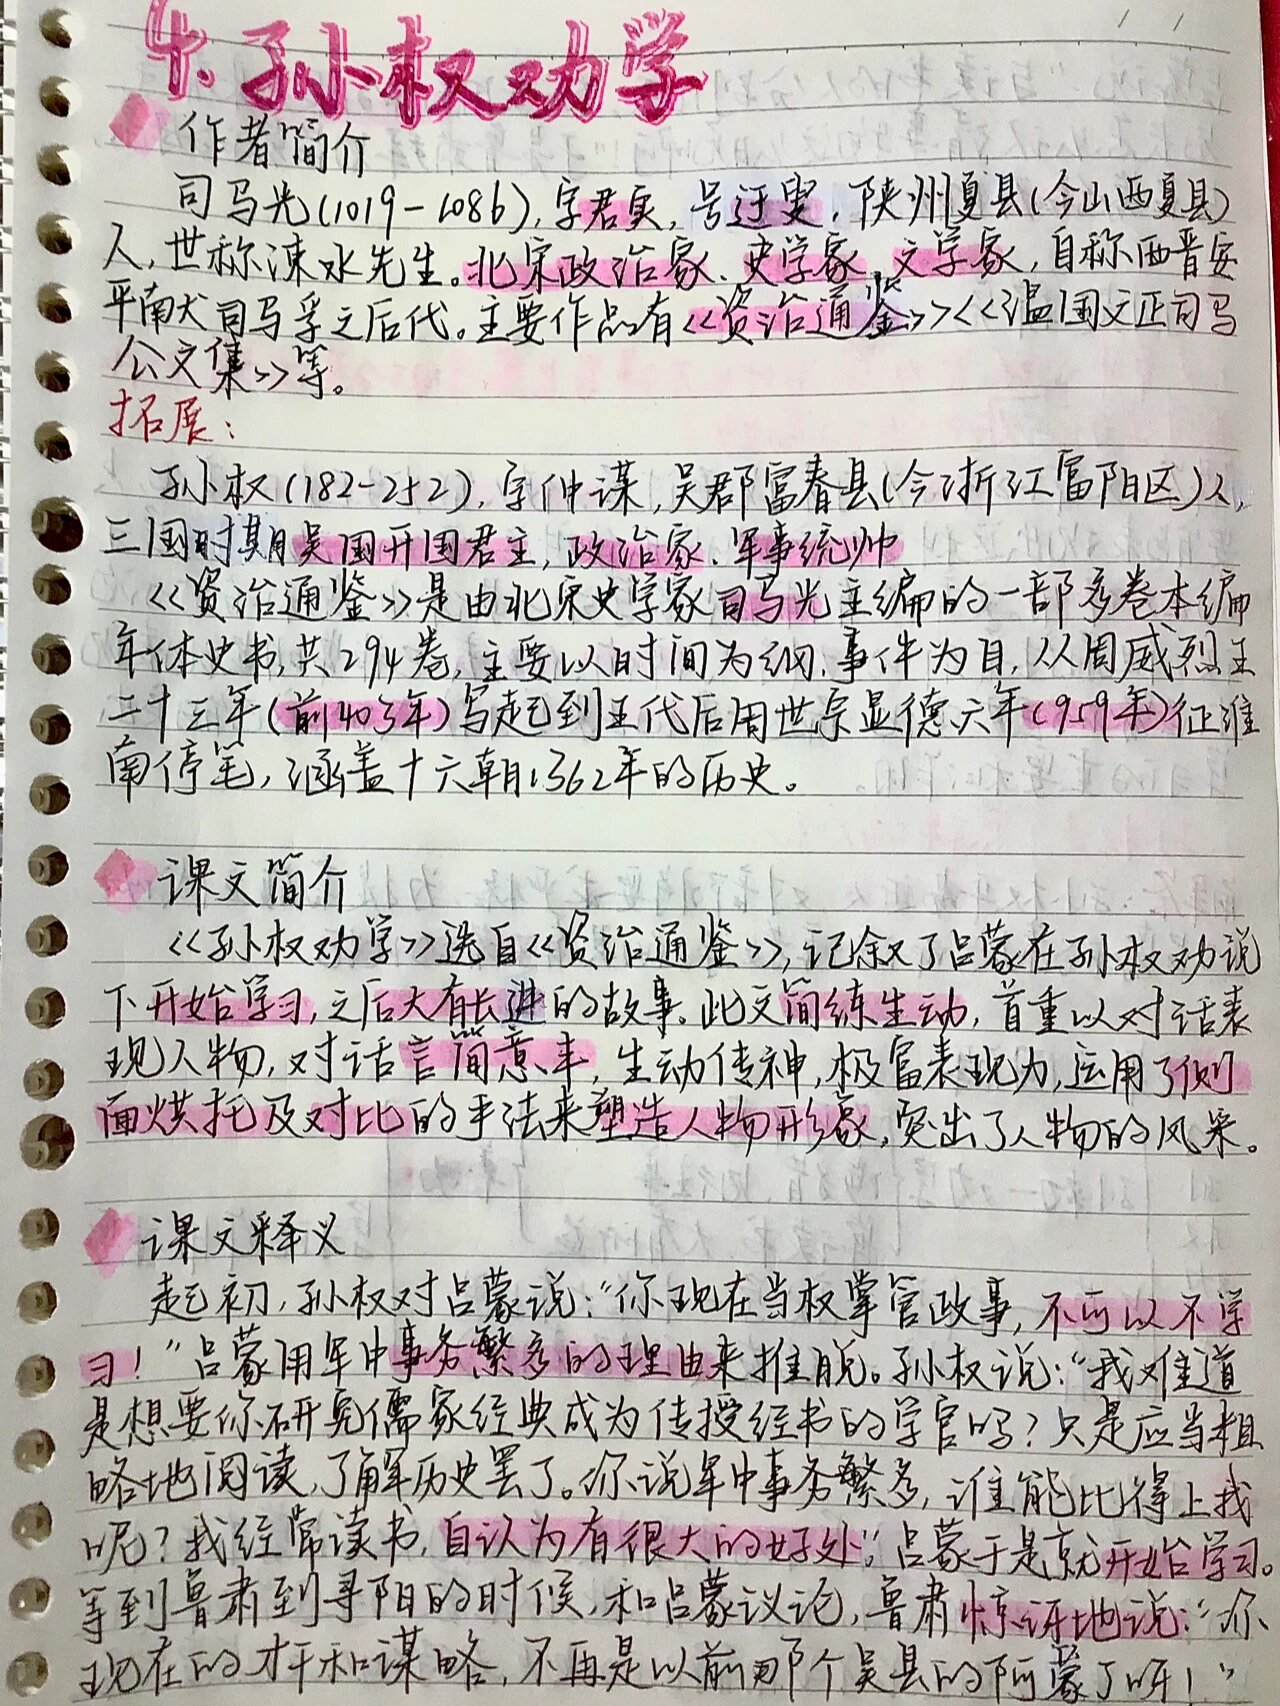 4. 孙权劝学
作者简介
司马光(1019-1086),字君实,号迂叟,陕州夏县(今山西夏县)
人,世称涑水先生。北宋政治家、史学家、文学家,自称西晋安
平南犬司马孚之后代。主要作品有<<资治通鉴>><<温国文正司马
公文集>>等。
拓展:
孙权(182-252),字仲谋,吴郡富春县(今浙江富阳区)人,
三国时期吴国开国君主,政治家、军事统帅
<<资治通鉴>>是由北宋史学家司马光主编的一部多卷本编
年体史书,共294卷,主要以时间为纲,事件为目,从周威烈王
二十三年(前403年)写起到五代后周世宗显德六年(959年)征淮
南停笔,涵盖十六朝1362年的历史。
课文简介
<<孙权劝学>>选自<<资治通鉴>>,记叙了吕蒙在孙权劝说
下开始学习,之后大有长进的故事。此文简练生动,首重以对话表
现人物,对话言简意丰,生动传神,极富表现力,运用了侧
面烘托及对比的手法来塑造人物形象,突出了人物的风采。
课文释义
起初,孙权对吕蒙说:“你现在当权掌管政事,不可以不学
习!”吕蒙用军中事务繁多的理由来推脱。孙权说:“我难道
是想要你研究儒家经典成为传授经书的学官吗?只是应当粗
略地阅读,了解历史罢了。你说军中事务繁多,谁能比得上我
呢?我经常读书,自认为有很大的好处。”吕蒙于是就开始学习。
等到鲁肃到寻阳的时候,和吕蒙议论,鲁肃惊讶地说:“你
现在的才干和谋略,不再是以前那个吴县的阿蒙了呀!”